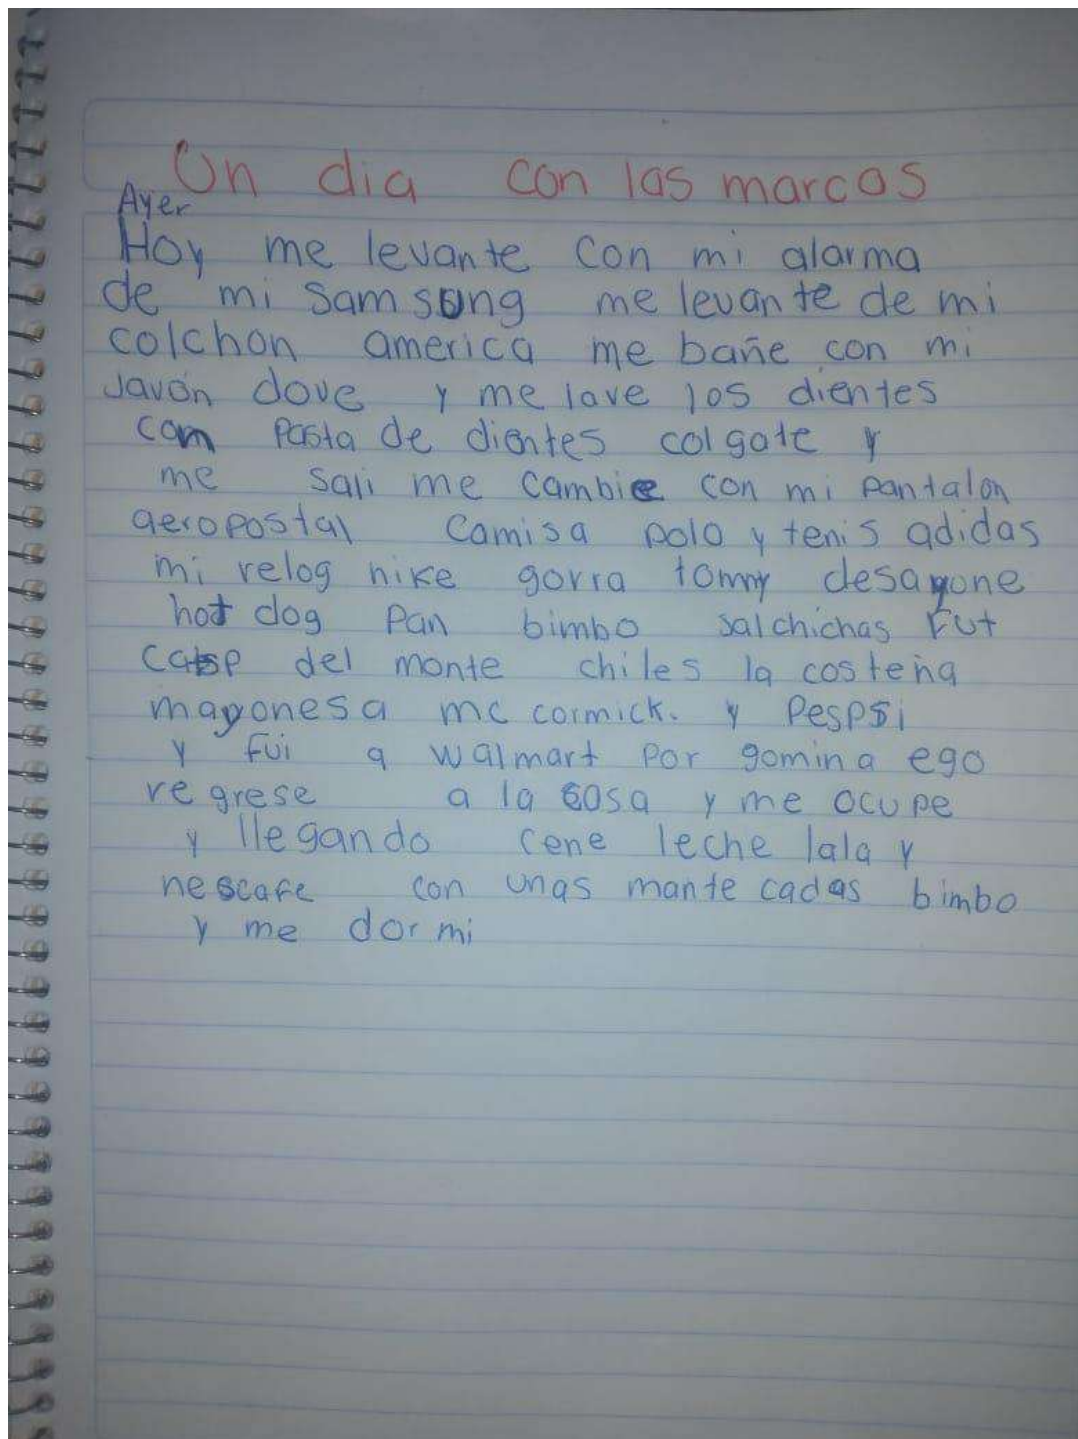 Un dia con las marcas
Ayer
Hoy me levante con mi alarma
de mi Samsung me levante de mi
colchon america me bañe con mi
Javón dove y me lave los dientes
com Pasta de dientes colgate y
me sali me cambie con mi pantalon
aeropostal Camisa polo y tenis adidas
mi relog nike gorra tommy desayone
hot dog Pan bimbo salchichas Fut
catsp del monte chiles la costeña
mayonesa mc cormick. y Pespsi
y fui a walmart por gomina ego
regrese a la casa y me ocupe
y llegando cene leche lala y
nescafe con unas mantecadas bimbo
y me dormi